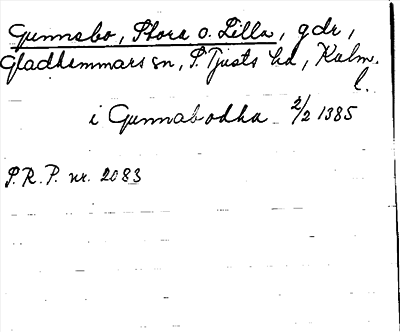 Gunnebo, Stora o. Lilla, gdr,
Gladhammars sn, S. Tjusts hd, Kalm.
l.
i Gunnabodha 2/2 1385
S.R.P. nr. 2083